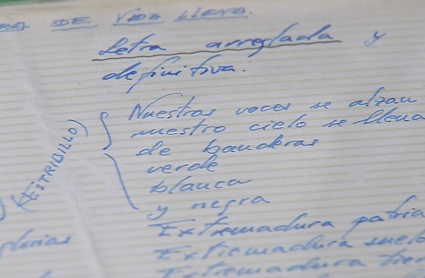 DE VIDA LLENA.
Letra arreglada y
definitiva.
(ESTRIBILLO)
Nuestras voces se alzan
nuestro cielo se llena
de banderas
verde
blanca
y negra
Extremadura patria
Extremadura suelo
Extremadura
glorias